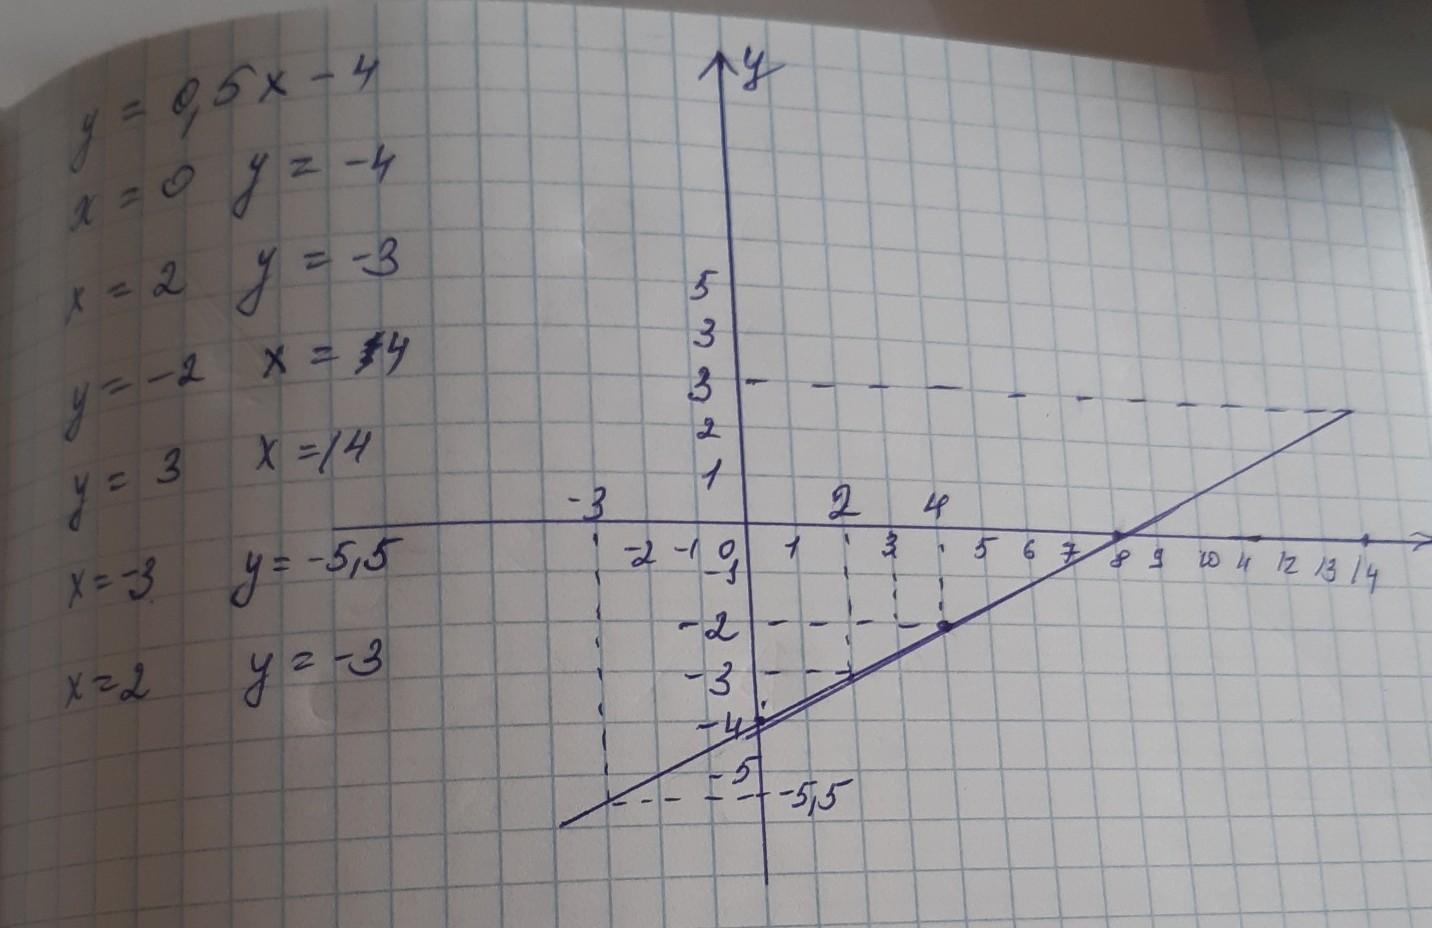 y = 0,5x - 4
x = 0 y = -4
x = 2 y = -3
y = -2 x = 4
y = 3 x = 14
x = -3 y = -5,5
x = 2 y = -3
y
5
3
3
2
1
-3 2 4
-2 -1 0 1 3 5 6 7 8 9 10 11 12 13 14
-1
-2
-3
-4
-5
-5,5